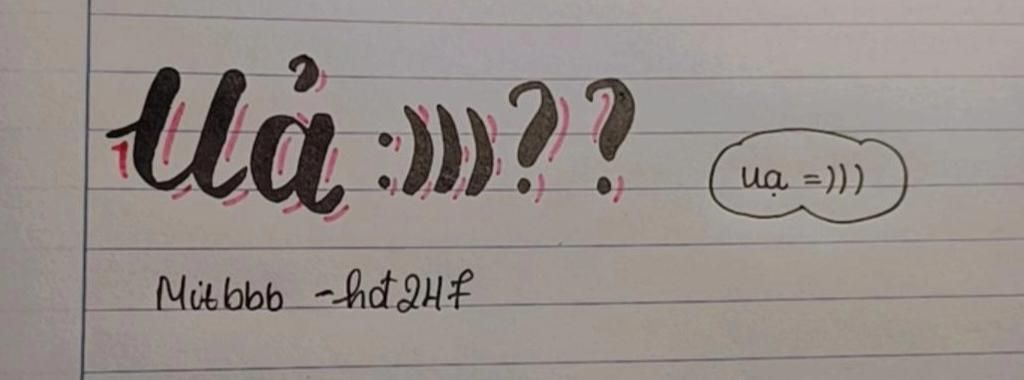 Uả :)))??
uạ =)))
Mitbbb -hđ24f